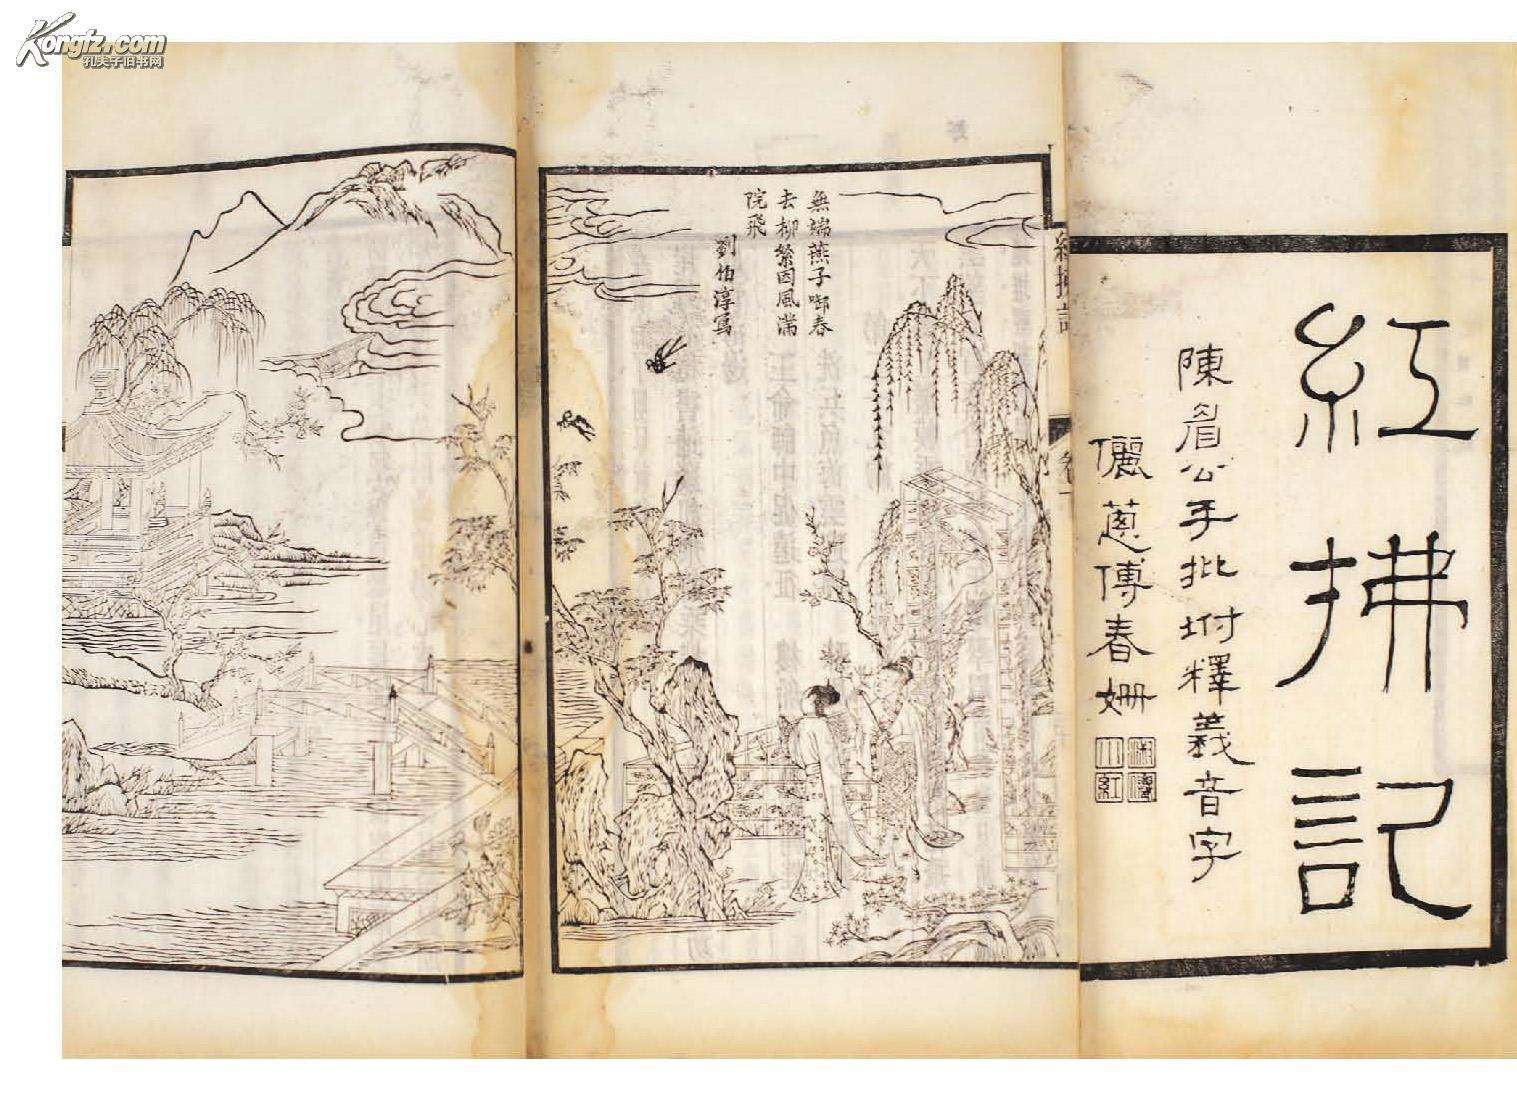 Kongfz.com
孔夫子旧书网
紅拂記
陳眉公手批坿釋義音字
儷蔥傅春姍
小紅
無端燕子啣春
去柳絮因風滿
院飛
劉伯淳寫
紅拂記
卷一